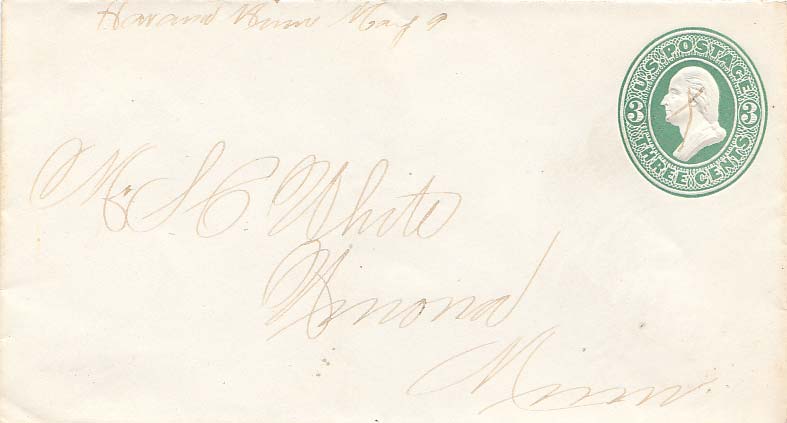 Havana Minn May 9
U.S. POSTAGE
3 3
THREE CENTS
Mr S C White
Winona
Minn.